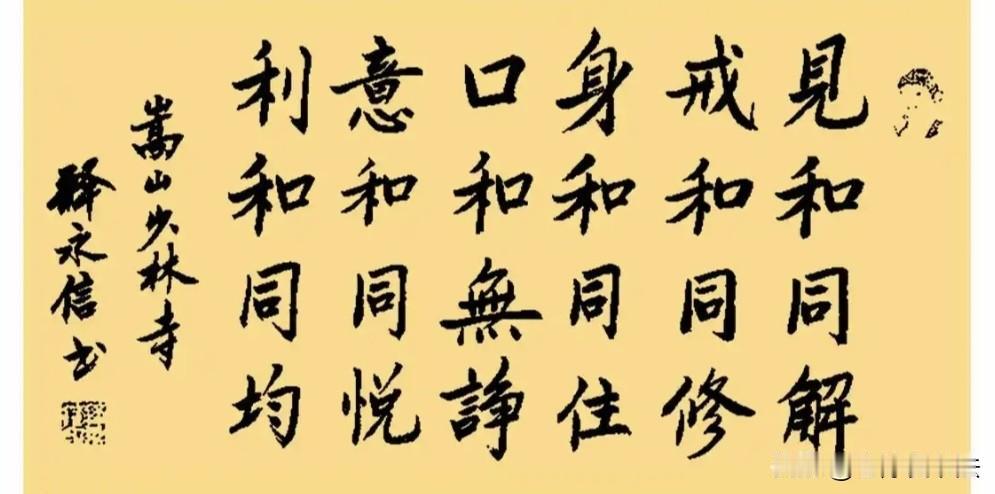 見和同解
戒和同修
身和同住
口和無諍
意和同悅
利和同均
嵩山少林寺
釋永信书